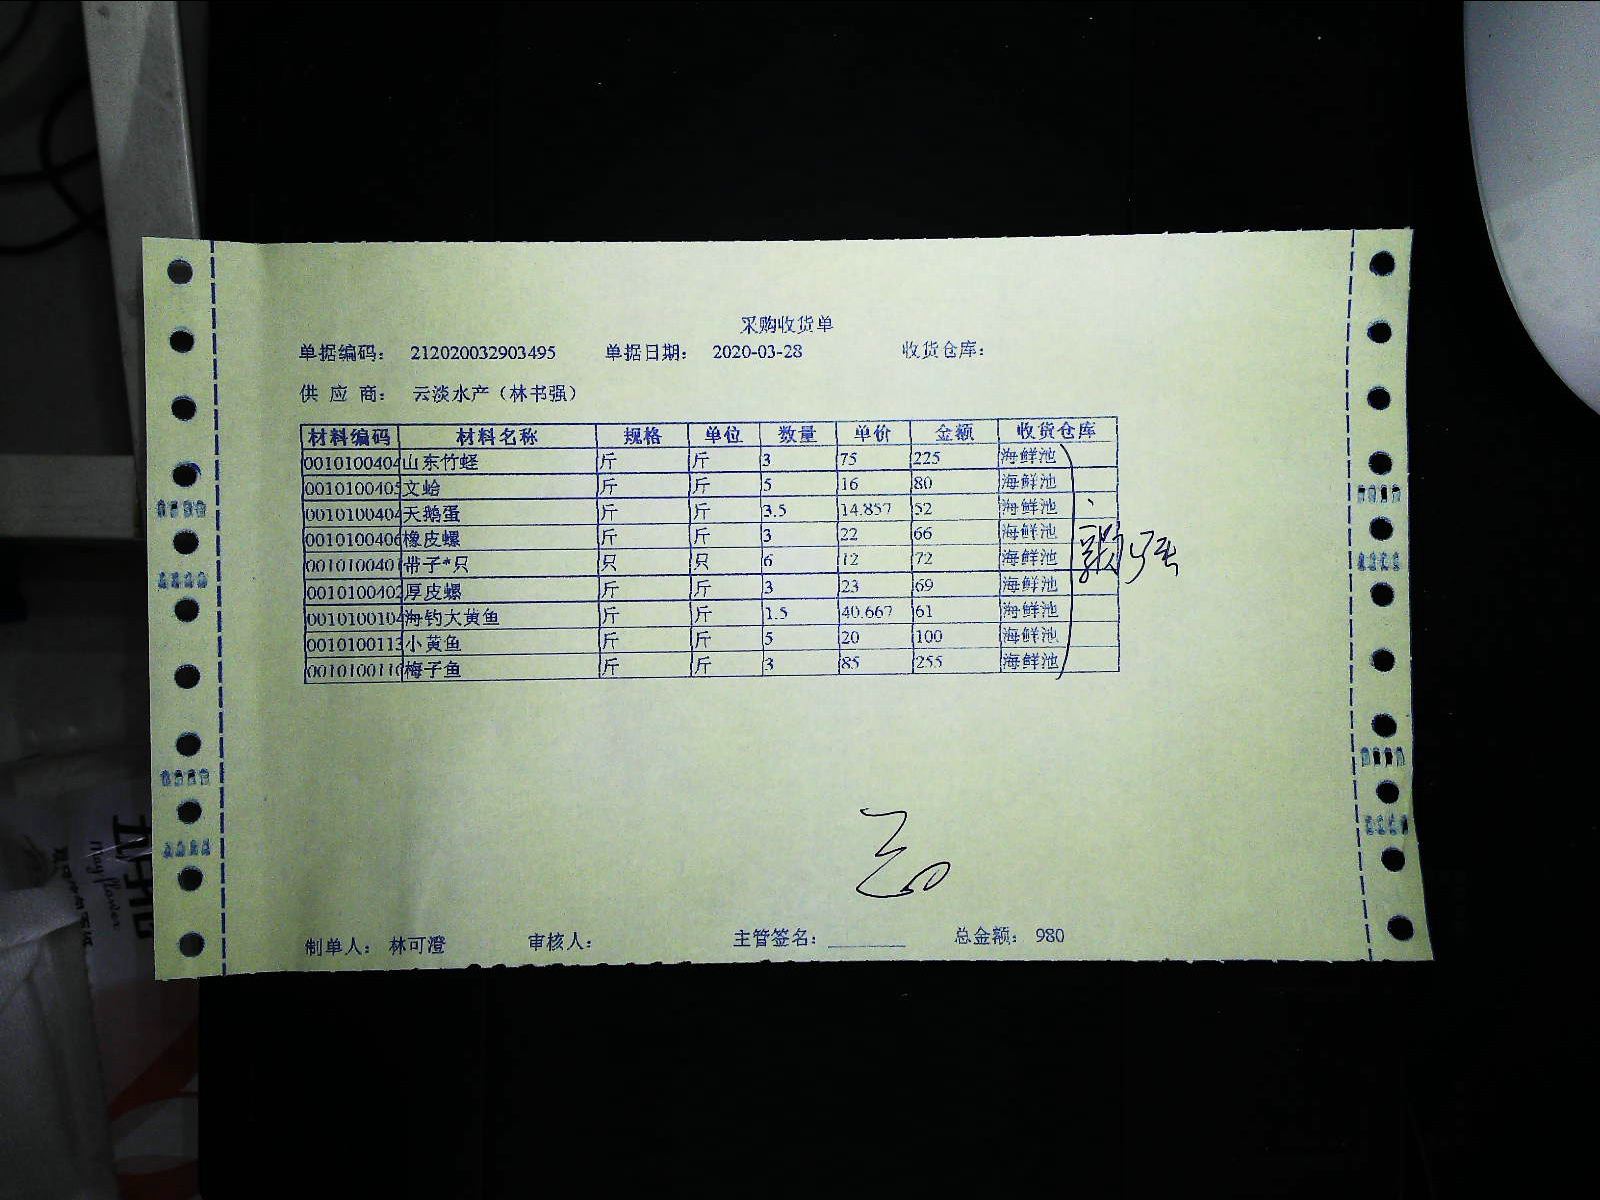 采购收货单
单据编码： 212020032903495 单据日期： 2020-03-28 收货仓库：
供 应 商： 云淡水产（林书强）
材料编码 材料名称 规格 单位 数量 单价 金额 收货仓库
0010100404 山东竹蛏 斤 斤 3 75 225 海鲜池
0010100405 文蛤 斤 斤 5 16 80 海鲜池
0010100404 天鹅蛋 斤 斤 3.5 14.857 52 海鲜池
0010100406 橡皮螺 斤 斤 3 22 66 海鲜池
001010040 带子*只 只 只 6 12 72 海鲜池
0010100402 厚皮螺 斤 斤 3 23 69 海鲜池
0010100104 海钓大黄鱼 斤 斤 1.5 40.667 61 海鲜池
0010100113 小黄鱼 斤 斤 5 20 100 海鲜池
001010011 梅子鱼 斤 斤 3 85 255 海鲜池
制单人： 林可澄 审核人： 主管签名： 总金额： 980
Mayflower